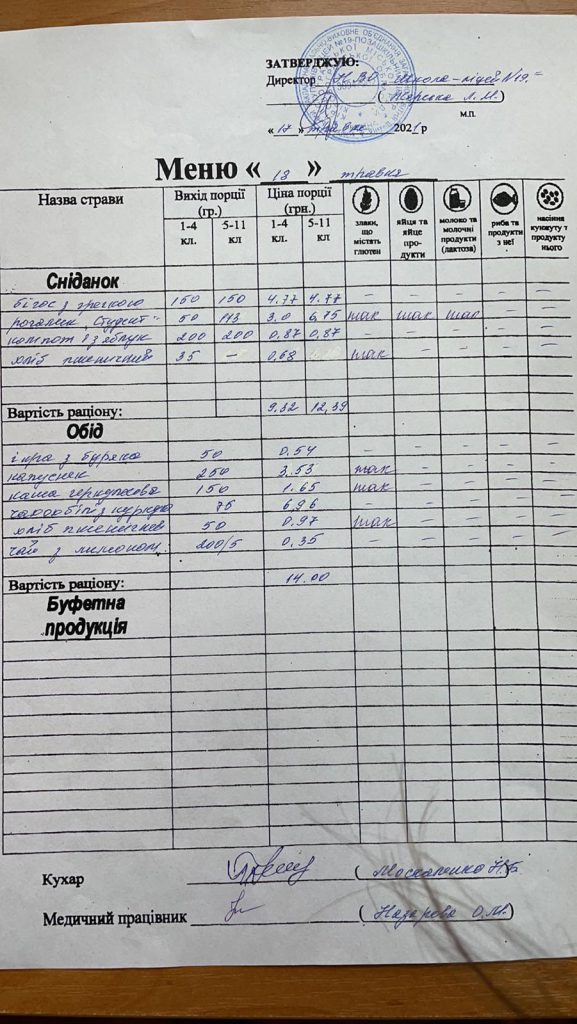 ЗАТВЕРДЖУЮ:
Директор НВО Школа-ліцей №19
( Л. М.)
м.п.
« 17 » травня 2021 р
Меню « 18 » травня
Назва страви Вихід порції (гр.) Ціна порції (грн.) злаки, що містять глютен яйця та яйце продукти молоко та молочні продукти (лактоза) риба та продукти з неї насіння кунжуту т продукту нього
1-4 кл. 5-11 кл 1-4 кл. 5-11 кл.
Сніданок
бігос з 150 150 4.77 4.77 – – – – –
рогалик "Студент" 50 113 3,0 6,75 так так так – –
компот із яблук 200 200 0,87 0,87 – – – – –
хліб пшеничний 35 – 0,68 так – – – –
Вартість раціону: 9,32 12,39
Обід
ікра з буряка 50 0.54 – – – – –
капусняк 250 3,53 так – – – –
каша геркулесова 150 1.65 так – – – –
75 6,96 – – – – –
хліб пшеничний 50 0,97 так – – – –
чай з лимоном 200/5 0,35 – – – – –
Вартість раціону: 14.00
Буфетна
продукція
Кухар ( Н.Б.
Медичний працівник ( Назарова О.М.)